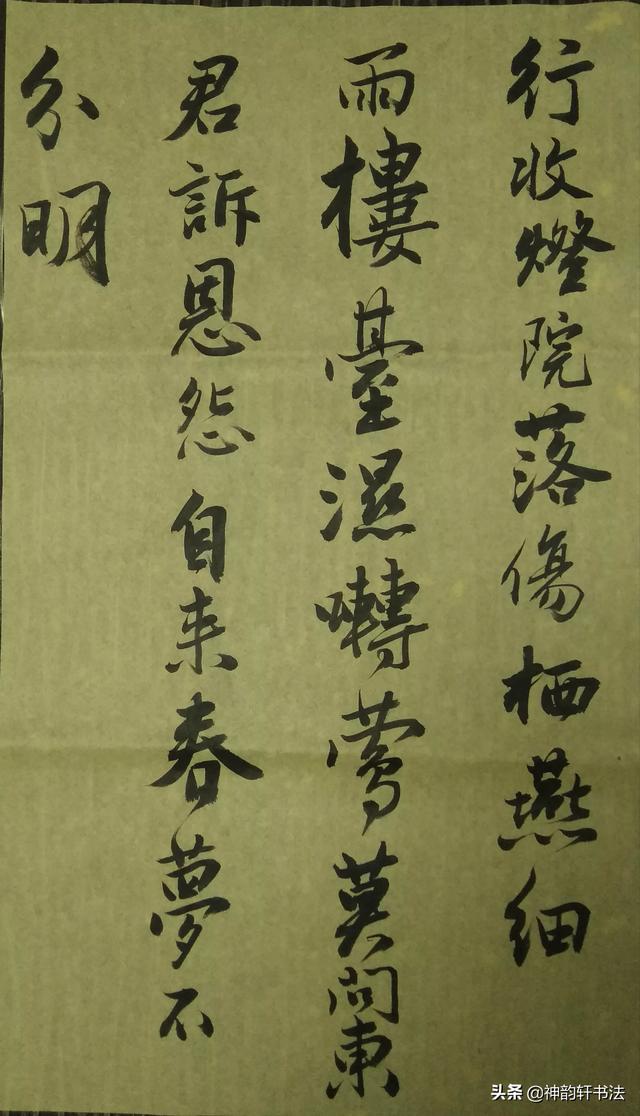 行收燈院落傷栖燕細
雨樓臺濕囀莺莫問東
君訴恩怨自来春夢不
分明
头条 @神韵轩书法